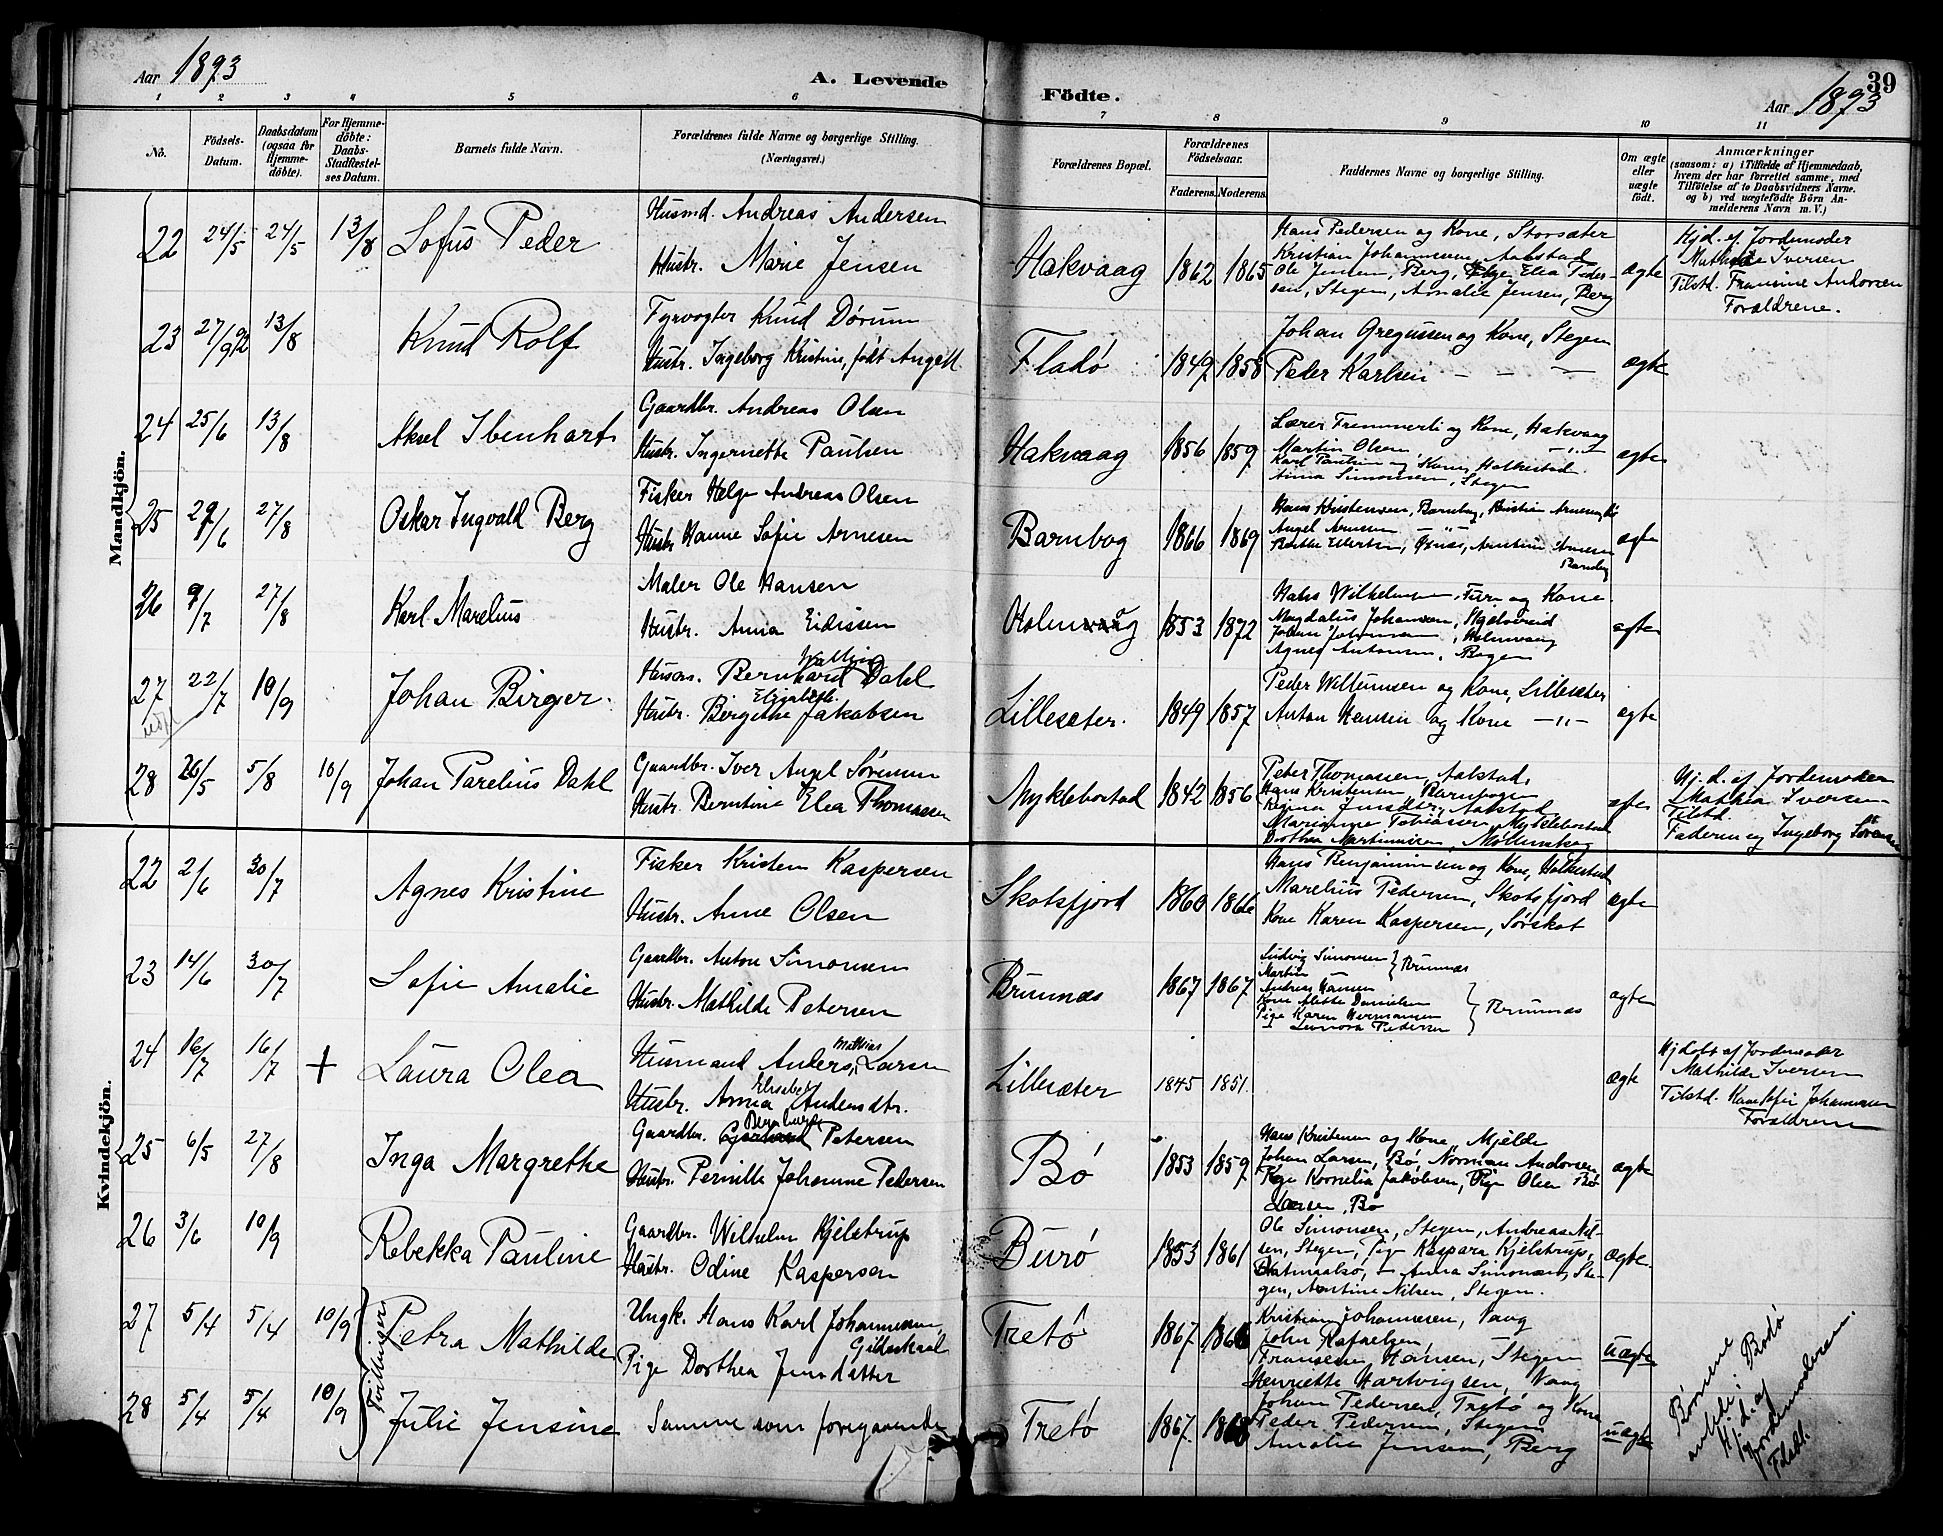 Aar 1893
A. Levende
Födte.
Aar 1893
39
1 2 3 4 5 6 7 8 9 10 11
No.
Födsels-Datum.
Daabsdatum (ogsaa for Hjemmedöbte).
For Hjemmedöbte: Daabs-Stadfæstelses Datum.
Barnets fulde Navn.
Forældrenes fulde Navne og borgerlige Stilling. (Næringsvei.)
Forældrenes Bopæl.
Forældrenes Födselsaar.
Faderens. Moderens.
Faddernes Navne og borgerlige Stilling.
Om ægte eller uægte födt.
Anmærkninger
(saasom: a) i Tilfælde af Hjemmedaab, hvem der har forrettet samme, med Tilföielse af to Daabsvidners Navne. og b) ved uægtefödte Börn Anmelderens Navn m. V.)
Mandkjön.
22 24/5 24/5 13/8 Lofus Peder
Husmd. Andreas Andersen
Hustr. Marie Jensen
Hakvaag 1862 1865
Hans Pedersen og Kone, Storsæter
Kristian Johannessen, Aalstad
Ole Jensen, Berg, Elea Peder-
sen, Stegen, Amalie Jensen, Berg
ægte
Hjd. af Jordemoder
Mathilde Iversen
Tilstd. Fransine Andorsen
Forældrene.
23 27/9 92 13/8 Knud Rolf
Fyrvogter Knud Dørum
Hustr. Ingeborg Kristine, født Angell
Fladø 1849 1858
Johan Gregussen og Kone, Stegen
Peder Karlsen — — —
ægte
24 25/6 13/8 Aksel Ibenhart
Gaardbr. Andreas Olsen
Hustr. Ingernette Paulsen
Hakvaag 1856 1859
Lærer Fremmerli og Kone, Hakvaag
Martin Olsen —„—
Karl Paulsen og Kone, Halkestad
Anna Simonsen, Stegen
ægte
25 29/6 27/8 Oskar Ingvald Berg
Fisker Helge Andreas Olsen
Hustr Hanne Sofie Arnesen
Barnbog 1866 1869
Hans Kristensen, Barnbog, Kristian Arnesen, Bø
Angel Arnesen —„—
ægte
26 9/7 27/8 Karl Marelius
Maler Ole Hansen
Hustr. Anna Eidissen
1853 1872
Hans Wilhelmsen, og Kone
Magdalius Johansen,
Johan Johansen, Holmvaag
Agnes Antonsen, Bogen
ægte
27 22/7 10/9 Johan Birger
Husm. Bernhard Dahl
Hustr. Bergithe Elisabeth Jakobsen
Lillesæter. 1849 1857
Peder Willumsen og Kone, Lillesæter
Anton Hansen og Kone —„—
ægte
28 26/5 5/8 10/9 Johan Parelius Dahl
Gaardbr. Iver Angel Sørensen
Hustr. Berntine Elea Thomassen
Myklebostad 1842 1856
Peter Thomassen, Aalstad,
Hans Kristensen, Barnbogen
Regina Jensdtr., Aalstad
Marianne Tobiassen, Myklebostad
Dorthea Martinussen, Møllenskog
ægte
Hj. d. af Jordemoder
Mathea Iversen
Tilstd.
Faderen og Ingeborg Sørensen
Kvindekjön.
22 2/6 30/7 Agnes Kristine
Fisker Kristen Kaspersen
Hustr. Anne Olsen
Skotsfjord 1860 1866
Hans Benjaminsen og Kone, Halkestad
Marelius Pedersen, Skotsfjord
Kone Karen Kaspersen, Sørskot
ægte
23 14/6 30/7 Sofie Amalie
Gaardbr. Anton Simonsen
Hustr. Mathilde Petersen
Brunnæs 1867 1867
Ludvig Simonsen } Brunnæs
Martin
Andreas Hansen
Kone Mette Danielsen } Brunnæs
Pige Karen Hermansen
— Lenora Pedersen
ægte
24 16/7 16/7 + Laura Olea
Husmand Anders Mathias Larsen
Hustr. Anna Elisabet Andersdtr.
Lillesæter 1845 1851.
ægte
Hjdøbt af Jordemoder
Mathilde Iversen
Tilstd. Hansofie Johannesen
Forældrene
25 6/5 27/8 Inga Margrethe
Gaardbr. Petersen
Hustr. Pernille Johanne Pedersen
Bø 1853 1859
Hans Kristensen og Kone, Mjelde
Johan Larsen, Bø, Norman Andorsen,
Pige Kornelia Jakobsen, Pige Olea Bø
Larsen, Bø
ægte
26 3/6 10/9 Rebekka Pauline
Gaardbr. Wilhelm Kjelstrup
Hustr. Odine Kaspersen
Burø 1853 1861
Ole Simonsen, Stegen, Andreas Nil-
sen, Stegen, Pige Kaspara Kjelstrup,
— Anna Simonsen, Ste-
gen, Antine Nilsen, Stegen.
ægte.
27 5/4 5/4 10/9 Tvillinger Petra Mathilde
Ungk. Hans Karl Johannesen, Gildeskaal
Pige Dorthea Jensdatter
Tretø 1867
Kristian Johannesen, Vaag
John Rafaelsen,
Fransena Hansen, Stegen
Henriette Hartvigsen, Vaag
uægte
28 5/4 5/4 10/9 Julie Jensine
Samme som foregaaende
Tretø 1867.
Johan Pedersen, Tretø og Kone
Peder Pedersen, Stegen
Amalie Jensen, Berg
uægte
Børnene
anmeldt i Bodø
Hj. d. af
Jordemoderen.
Tilstd.